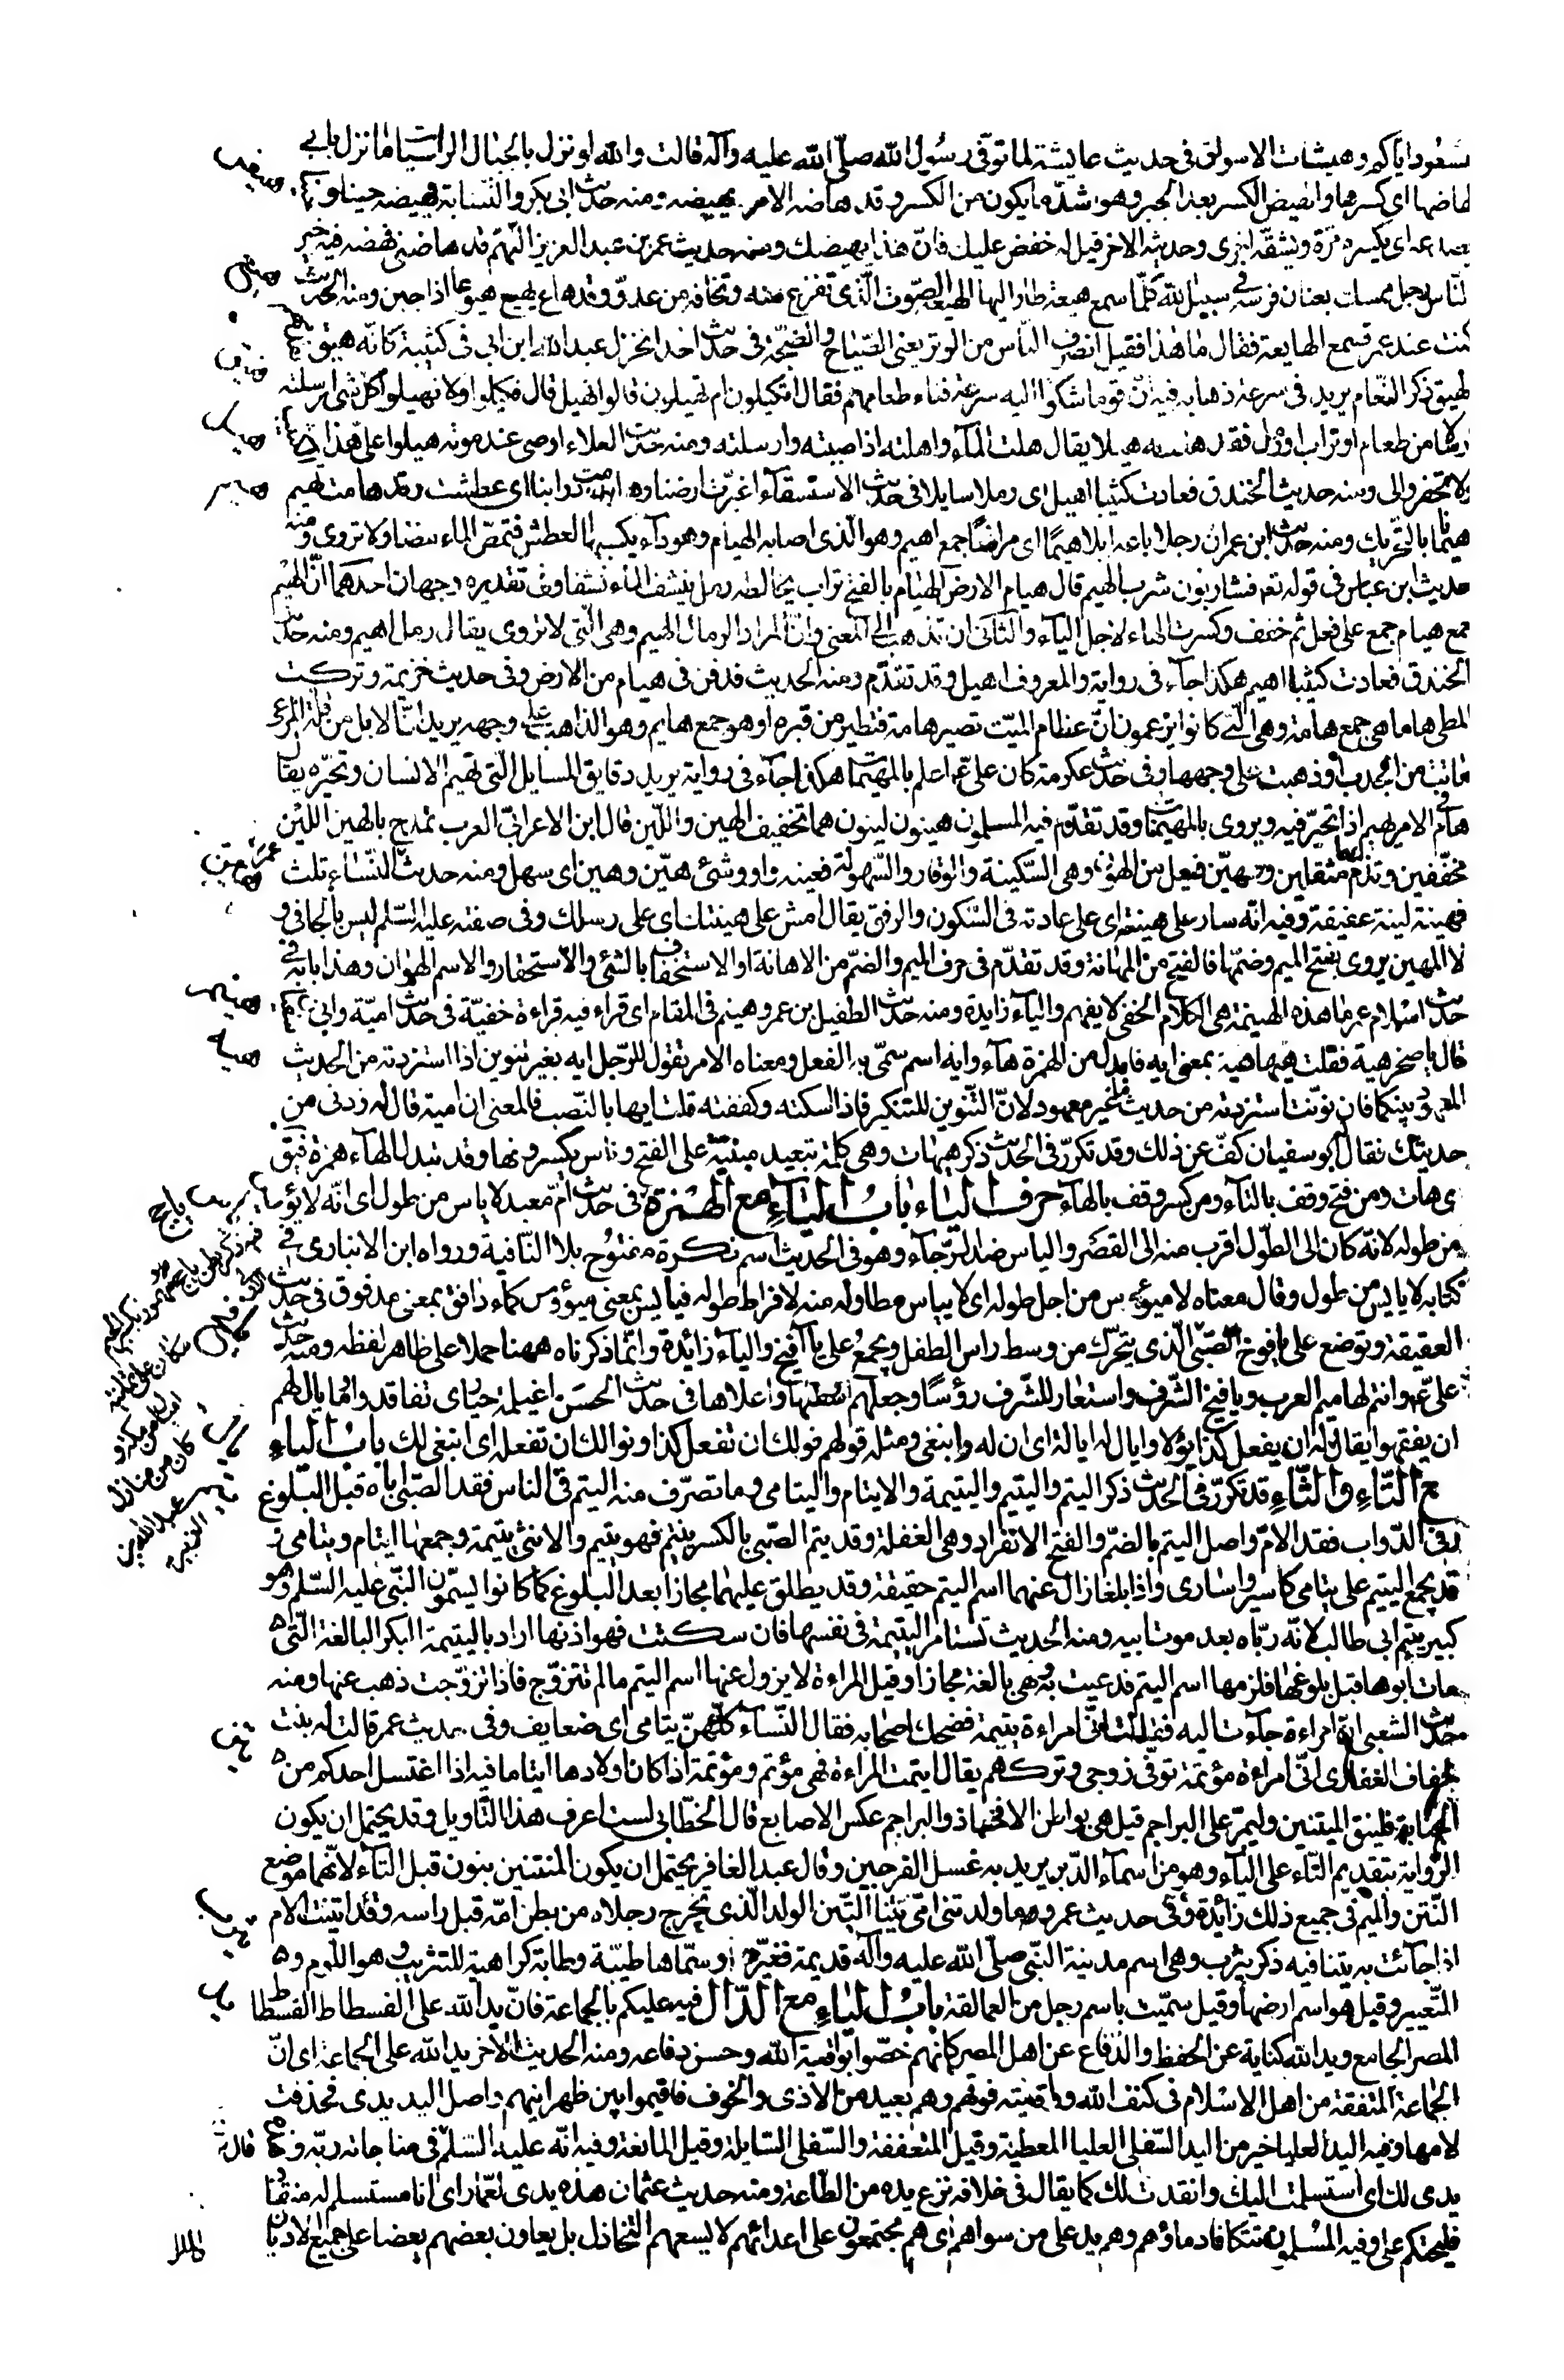 مسعود اياكم وهيشات الاسواق في حديث عايشة لما توفي رسول الله صلى الله عليه وآله قالت والله لو نزل بالجبال الراسيات ما نزل بابي
لهاضها اي كسرها والهيض الكسر بعد الجبر وهو اشد ما يكون من الكسر وقد هاضه الامر يهيضه ومنه حديث ابي بكر والنسابة يهيضه حينا و
يصدعه اي يكسره مرة ويشقه اخرى وحديثه الاخر قيل له خفض عليك فان هذا يهيضك ومنه حديث عمر بن عبد العزيز اللهم قد هاضني فهضه فيه خير
الناس رجل ممسك بعنان فرسه في سبيل الله كلما سمع هيعة طار اليها الهيعة الصوت الذي تفزع منه وتخافه من عدو وقد هاع يهيع هيوعا اذا جبن ومنه الحديث
كنت عند عمر فسمع الهايعة فقال ما هذا فقيل انصرف الناس من الوتر يعني الصياح والضجة في حديث احد انخزل عبد الله ابن ابي في كتيبة كانه هيق
الهيق ذكر النعام يريد في سرعة ذهابه فيه ان قوما شكوا اليه سرعة فناء طعامهم فقال اتكيلون ام تهيلون قالوا نهيل قال فكيلوا ولا تهيلوا كل شيء ارسلته
ارسالا من طعام او تراب او رمل فقد هلته هيلا يقال هلت الماء واهلته اذا صببته وارسلته ومنه حديث العلاء اوصى عند موته هيلوا علي هذا
ولا تحفروا لي ومنه حديث الخندق فعادت كثيبا اهيل اي رملا سايلا في حديث الاستسقاء اغبرت ارضنا وهامت دوابنا اي عطشت وقد هامت تهيم
هيمانا بالتحريك ومنه حديث ابن عمر ان رجلا باعه ابلا هيما اي مراضا جمع اهيم وهو الذي اصابه الهيام وهو داء يكسبها العطش فتمص الماء مصا ولا تروى ومنه
حديث ابن عباس في قوله تع فشاربون شرب الهيم قال هيام الارض الهيام بالفتح تراب يخالطه رمل ينشف الماء نشفا وفي تقديره وجهان احدهما ان الهيم
جمع هيام جمع على فعل ثم خفف وكسرت الهاء لاجل الياء والثاني ان تذهب الى المعنى وان المراد الرمال الهيم وهي التي لا تروى يقال رمل اهيم ومنه حديث
الخندق فعادت كثيبا اهيم هكذا جاء في رواية والمعروف اهيل وقد تقدم ومنه الحديث فدفن في هيام من الارض وفي حديث خزيمة وتركت
المطي هاما هي جمع هامة وهي التي كانوا يزعمون ان عظام الميت تصير هامة فتطير من قبره او هو جمع هايم وهو الذاهب على وجهه يريد ان الابل من قلة المرعى
ماتت من الجدب او ذهبت على وجهها وفي حديث عكرمة كان علي ع اعلم بالمهيمات هكذا جاء في رواية يريد دقايق المسايل التي تهيم الانسان وتحيره يقال
هام في الامر يهيم اذا تحير فيه ويروى بالمهيمنات وقد تقدم فيه المسلمون هينون لينون هما تخفيف الهين واللين قال ابن الاعرابي العرب تمدح بالهين اللين
مخففين وتذم بهما مثقلين وهين فيعل من الهون وهي السكينة والوقار والسهولة فعينه واو وشيء هين وهين اي سهل ومنه حديث عمر النساء ثلث
فهينة لينة عفيفة وفيه انه سار على هينته اي على عادته في السكون والرفق يقال امش على هينتك اي على رسلك وفي صفته عليه السلم ليس بالجافي و
لا المهين يروى بفتح الميم وضمها فالفتح من المهانة وقد تقدم في حرف الميم والضم من الاهانة او الاستخفاف بالشيء والاستحقار والاسم الهوان وهذا بابه في
حديث اسلام عمر ما هذه الهينمة هي الكلام الخفي لا يفهم والياء زايدة ومنه حديث الطفيل بن عمرو هينم في المقام اي قراء فيه قراءة خفية في حديث امية وابي
قال يا صخر هيه فقلت هيها هيه بمعنى ايه فابدل من الهمزة هاء وايه اسم سمي به الفعل ومعناه الامر تقول للرجل ايه بغير تنوين اذا استزدته من الحديث
المعهود بينكما فان نونت استزدته من حديث ما غير معهود لان التنوين للتنكير فاذا اسكته وكففته قلت ايها بالنصب فالمعنى ان امية قال له زدني من
حديثك فقال ابو سفيان كف عن ذلك وقد تكرر في الحديث ذكر هيهات وهي كلمة تبعيد مبنية على الفتح وناس يكسرونها وقد تبدل الهاء همزة فيق
ايهات ومن فتح وقف بالتاء ومن كسر وقف بالهاء حرف الياء باب الياء مع الهمزة في حديث ام معبد لا ياس من طول اي انه لا يؤيس
من طوله لانه كان الى الطول اقرب منه الى القصر والياس ضد الرجاء وهو في الحديث اسم نكرة مفتوح بلا النافية ورواه ابن الانباري في
كتابه لا يايس من طول وقال معناه لا ميؤس من اجل طوله اي لا ييأس مطاوله منه لافراط طوله فيايس بمعنى ميؤوس كماء دافق بمعنى مدفوق في حديث
العقيقة وتوضع على يافوخ الصبي الذي يتحرك من وسط راس الطفل ويجمع على يآفيخ والياء زائدة وانما ذكرناه ههنا حملا على ظاهر لفظه ومنه حديث
علي ع وانتم لهاميم العرب ويآفيخ الشرف واستعار للشرف رؤسا وجعلهم وسطها واعلاها في حديث الحسن اغيلمة حيارى تفاقدوا ما يال لهم
ان يفقهوا يقال يال له ان يفعل كذا يؤلا وايال له ايالة اي ان له وانبغى ومثله قولهم نولك ان تفعل كذا ونوالك ان تفعله اي انبغى لك باب الياء
مع التاء والثاء قد تكرر في الحديث ذكر اليتم واليتيم واليتيمة والايتام واليتامى وما تصرف منه اليتم في الناس فقد الصبي اباه قبل البلوغ
وفي الدواب فقد الام واصل اليتم بالضم والفتح الانفراد وهي الغفلة وقد يتم الصبي بالكسر ييتم فهو يتيم والانثى يتيمة وجمعها ايتام ويتامى و
قد يجمع اليتيم على يتامى كاسير واسارى واذا بلغا زال عنهما اسم اليتم حقيقة وقد يطلق عليهما مجازا بعد البلوغ كما كانوا يسمون النبي عليه السلم وهو
كبير يتيم ابي طالب لانه رباه بعد موت ابيه ومنه الحديث تستامر اليتيمة في نفسها فان سكتت فهو اذنها اراد باليتيمة البكر البالغة التي
مات ابوها قبل بلوغها فلزمها اسم اليتم فدعيت به وهي بالغة مجازا وقيل المراءة لا يزول عنها اسم اليتم ما لم تتزوج فاذا تزوجت ذهب عنها ومنه
حديث الشعبي ان امراءة جاءت اليه فقالت اني امراءة يتيمة فضحك اصحابه فقال النساء كلهن يتامى اي ضعايف وفي حديث عمر قالت له بنت
خفاف الغفاري اني امراءة مؤتمة توفي زوجي وتركهم يقال ايتمت المراءة فهي مؤتم ومؤتمة اذا كان اولادها ايتاما فيه اذا اغتسل احدكم من
الجنابة فلينق الميتنين وليمر على البراجم قيل هي بواطن الافخاذ والبراجم عكس الاصابع قال الخطابي لست اعرف هذا التاويل وقد يحتمل ان يكون
الرواية بتقديم التاء على الياء وهو من اسماء الدبر يريد به غسل الفرجين وقال عبد الغافر يحتمل ان يكون المنتنين بنون قبل التاء لانهما موضع
النتن والميم في جميع ذلك زائدة وفي حديث عمرو ما ولدتني امي يتنا اليتن الولد الذي يخرج رجلاه من بطن امه قبل راسه وقد ايتنت الام
اذا جائت به يتنا فيه ذكر يثرب وهي اسم مدينة النبي صلى الله عليه وآله قديمة فغيرها وسماها طيبة وطابة كراهية للتثريب وهو اللوم و
التعيير وقيل هو اسم ارضها وقيل سميت باسم رجل من العمالقة باب الياء مع الدال فيه عليكم بالجماعة فان يد الله على الفسطاط الفسطاط
المصر الجامع ويد الله كناية عن الحفظ والدفاع عن اهل المصر كانهم خصوا بواقية الله وحسن دفاعه ومنه الحديث الاخر يد الله على الجماعة اي ان
الجماعة المتفقة من اهل الاسلام في كنف الله ووقايته فوقهم وهم بعيد من الاذى والخوف فاقيموا بين ظهرانيهم واصل اليد يدي فحذفت
لامها وفيه اليد العليا خير من اليد السفلى العليا المعطية وقيل المتعففة والسفلى السايلة وقيل المانعة وفيه انه عليه السلم في مناجاته ربه وهذه
يدي لك اي استسلمت اليك وانقدت لك كما يقال في خلافه نزع يده من الطاعة ومنه حديث عثمان هذه يدي لعمار اي انا مستسلم له منقاد
فليحتكم علي وفيه المسلمون تتكافا دماؤهم وهم يد على من سواهم اي هم مجتمعون على اعدائهم لا يسعهم التخاذل بل يعاون بعضهم بعضا على جميع الاديان